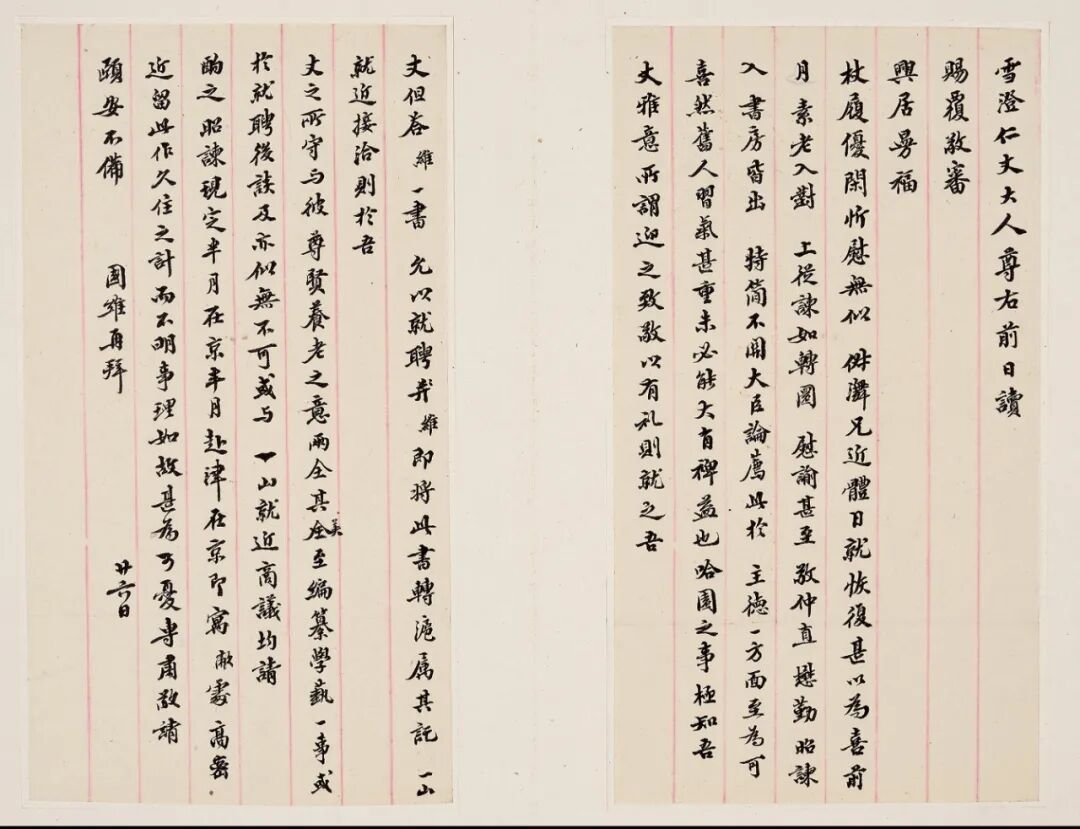 雪澄仁丈大人尊右前日讀
賜覆敬審
興居曼福
杖履優閑忻慰無似 儕鶴兄近體日就恢復甚以為喜前
月素老入對 上從諫如轉圜 慰諭甚至敬仲直 懋勤昭諫
入 書房皆出 特简不關大臣論薦此於 主德一方面至為可
喜然舊人習氣甚重未必能大有裨益也哈園之事極知吾
丈雅意所謂迎之致敬以有礼則就之吾
丈但答 維 一書 允以就聘弟 維 即將此書轉滬属其託 一山
就近接洽則於吾
丈之所守与彼尊賢養老之意兩全其美至編纂學藝一事或
於就聘後談及亦似無不可或与 一山就近商議均請
酌之昭諫現定半月在京半月赴津在京即寓 敝處高密
近留此作久住之計而不明事理如故甚為可憂専肅敬請
頤安不備 國維再拜
廿六日